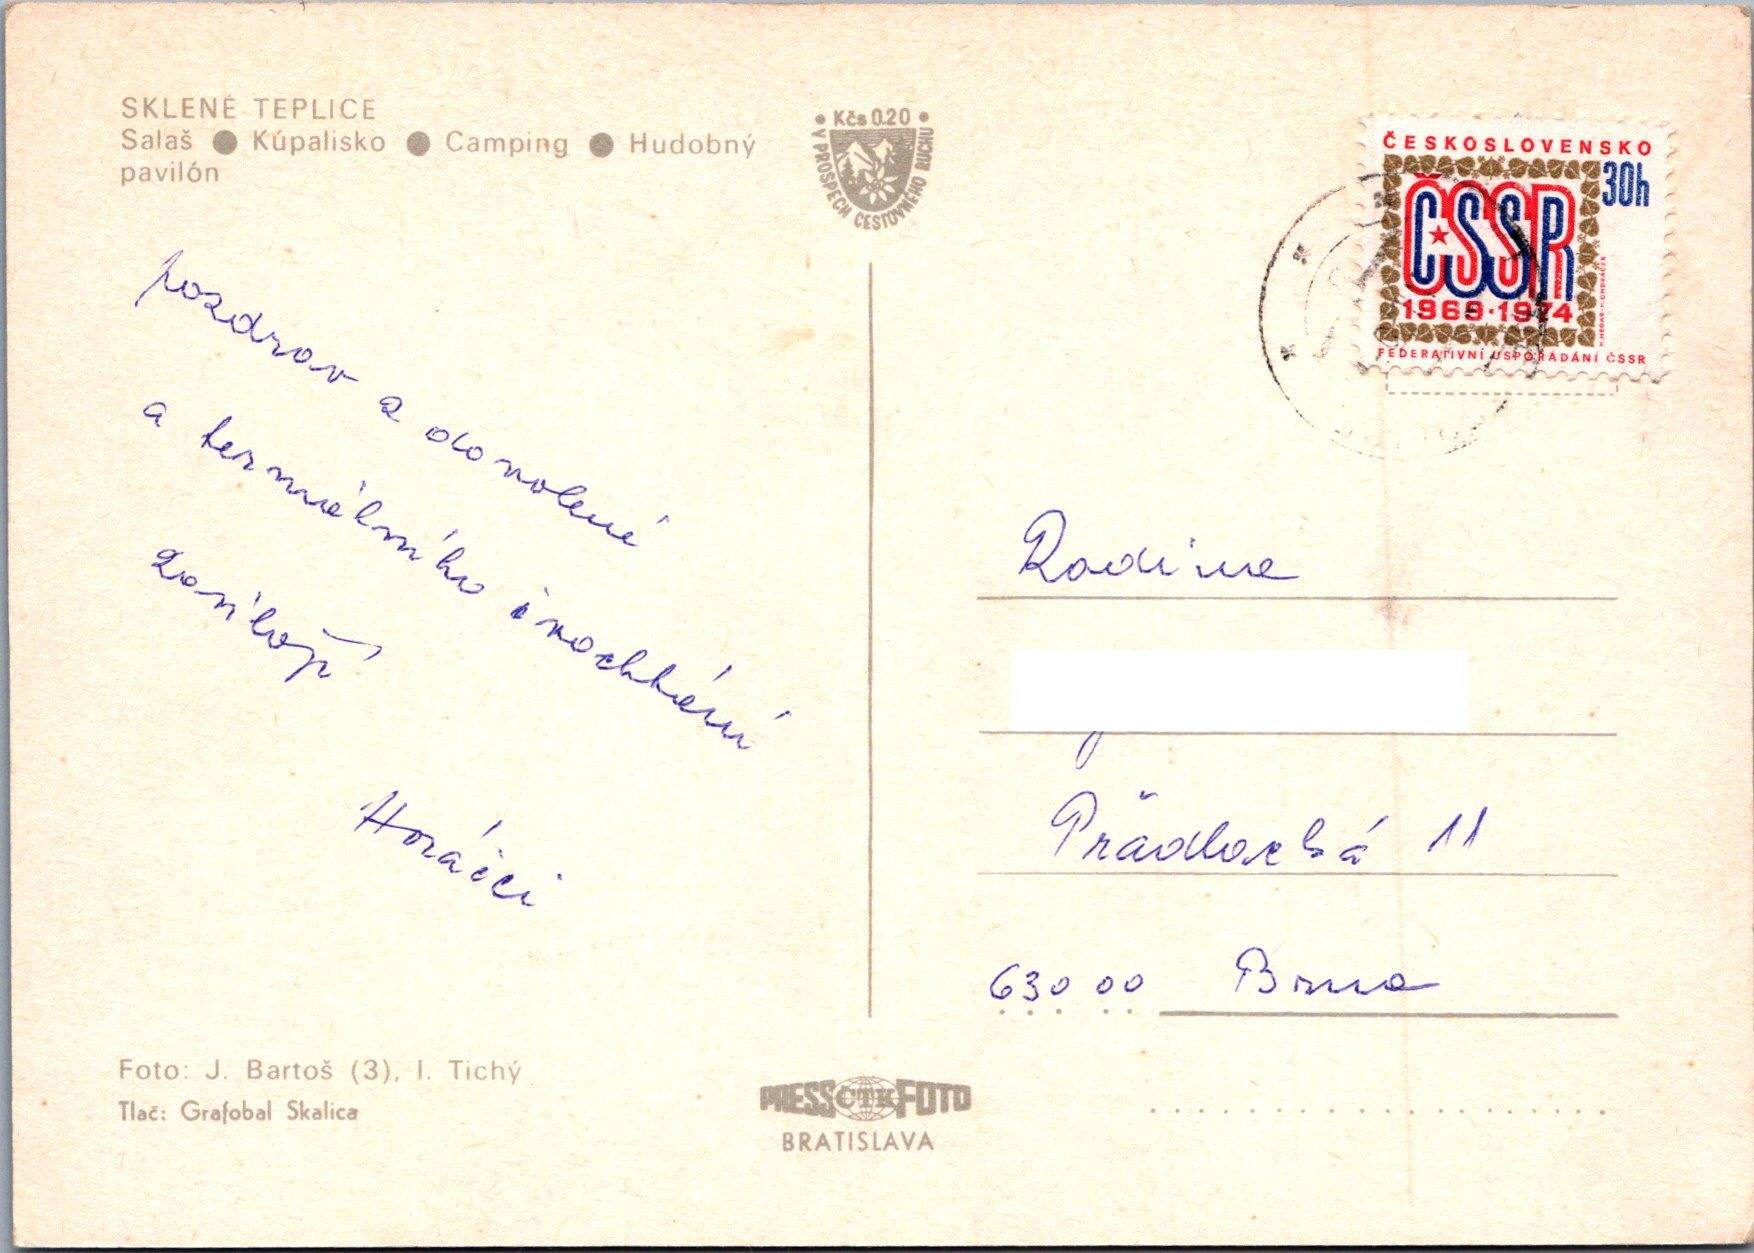 SKLENÉ TEPLICE
Salaš ● Kúpalisko ● Camping ● Hudobný
pavilón
• Kčs 0.20 •
V PROSPECH CESTOVNÉHO RUCHU
ČESKOSLOVENSKO
30h
ČSSR
1969·1974
FEDERATIVNÍ USPOŘÁDÁNÍ ČSSR
pozdrav z dovolené
a termálního
Horáčci
Rodina
Přadlácká 11
630 00 Brno
Foto: J. Bartoš (3), I. Tichý
Tlač: Grafobal Skalica
PRESS ČTK FOTO
BRATISLAVA